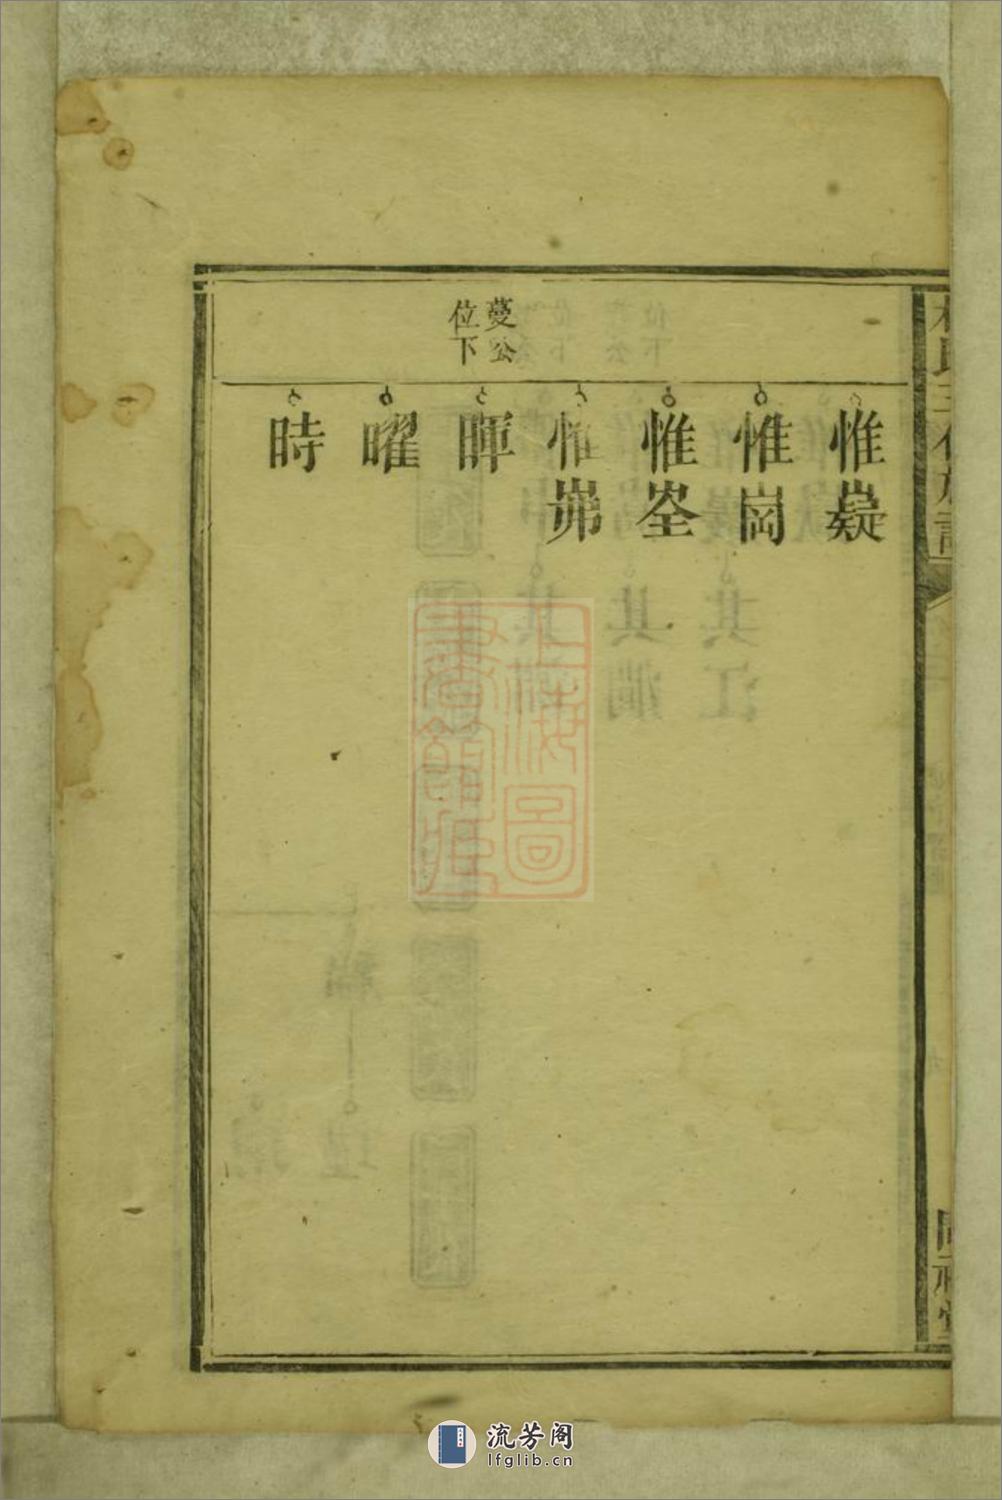 惟嶷
惟崗
惟峑
惟峏
夔公
位下
暉
曜
時
上海圖
書館藏
流芳阁
lfglib.cn